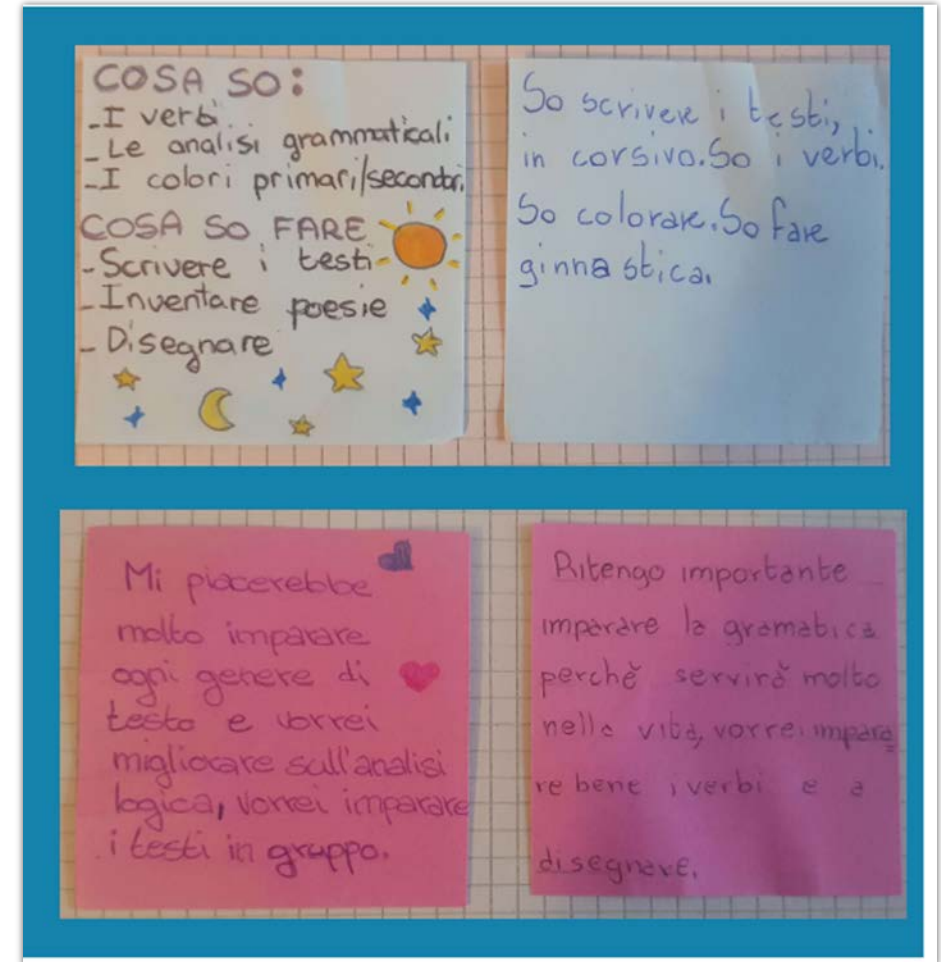 COSA SO:
-I verbi.
-Le analisi grammaticali
-I colori primari/secondari.
COSA SO FARE
-Scrivere i testi
-Inventare poesie
-Disegnare
So scrivere i testi,
in corsivo. So i verbi.
So colorare. So fare
ginnastica.
Mi piacerebbe
molto imparare
ogni genere di
testo e vorrei
migliorare sull'analisi
logica, vorrei imparare
i testi in gruppo.
Ritengo importante
imparare la gramatica
perchè servirà molto
nella vita, vorrei impara
re bene i verbi e a
disegnare.